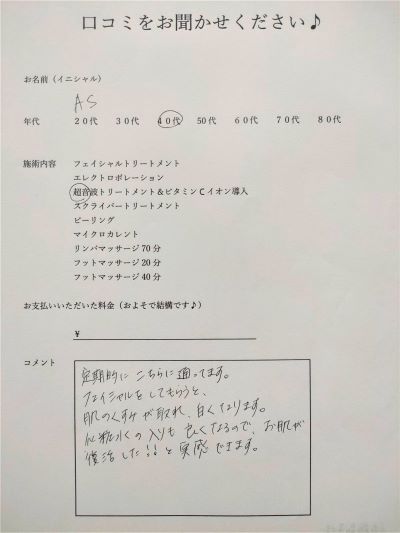 口コミをお聞かせください♪
お名前（イニシャル）
AS
年代 20代 30代 40代 50代 60代 70代 80代
施術内容 フェイシャルトリートメント
エレクトロポレーション
超音波トリートメント＆ビタミンCイオン導入
スクライバートリートメント
ピーリング
マイクロカレント
リンパマッサージ70分
フットマッサージ20分
フットマッサージ40分
お支払いいただいた料金（およそで結構です♪）
¥
コメント
定期的にこちらに通ってます。
フェイシャルをしてもらうと、
肌のくすみが取れ、白くなります。
化粧水の入りも良くなるので、お肌が
復活した!!と実感できます。